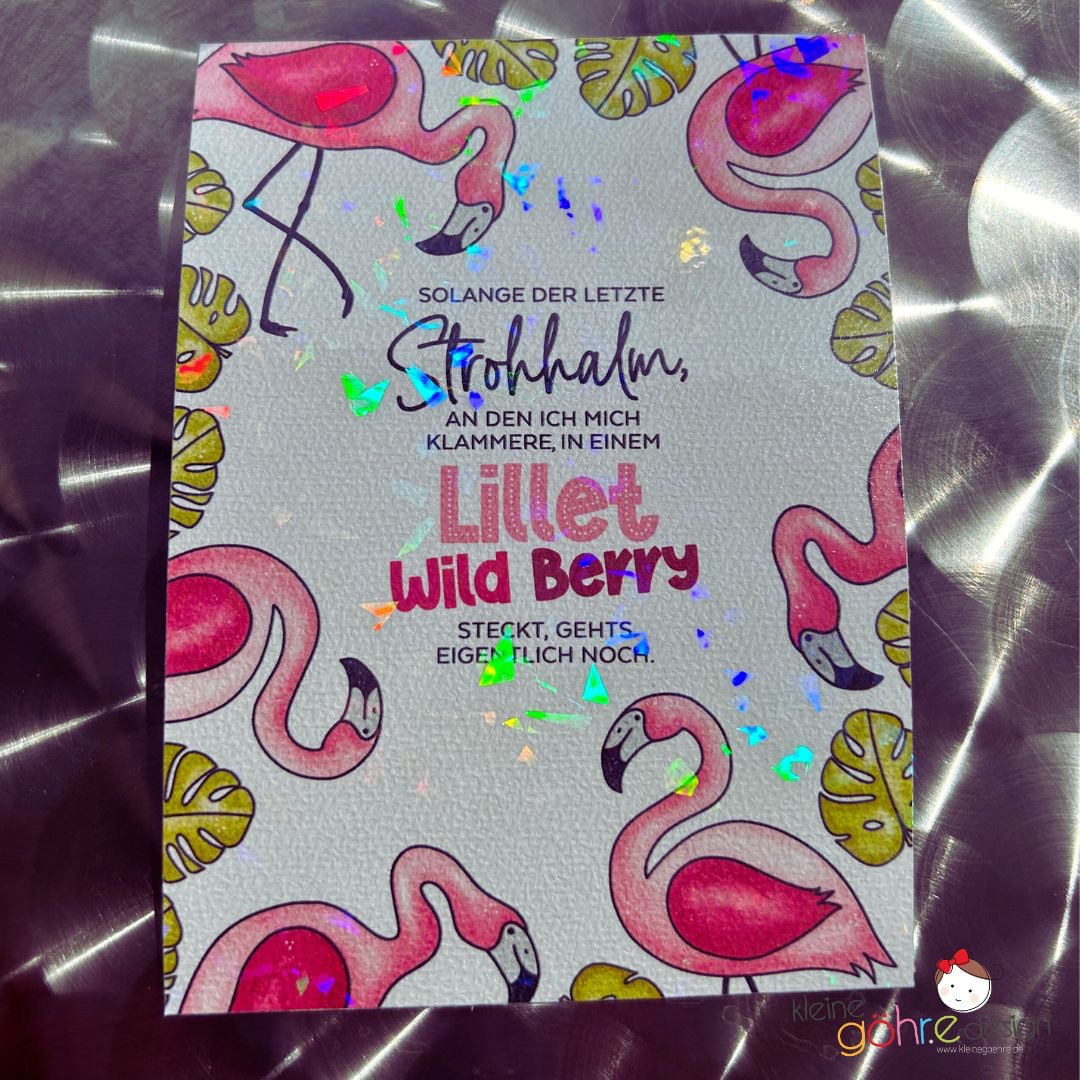 SOLANGE DER LETZTE
Strohhalm,
AN DEN ICH MICH
KLAMMERE, IN EINEM
Lillet
Wild Berry
STECKT, GEHTS
EIGENTLICH NOCH.
kleine
göhr.e design
www.kleinegoehre.de